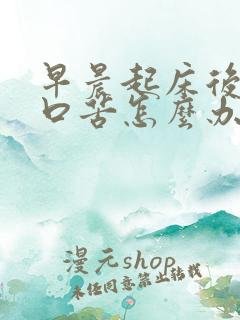 早晨起床後
口苦怎麼办
漫元shop
未任同意禁止转载